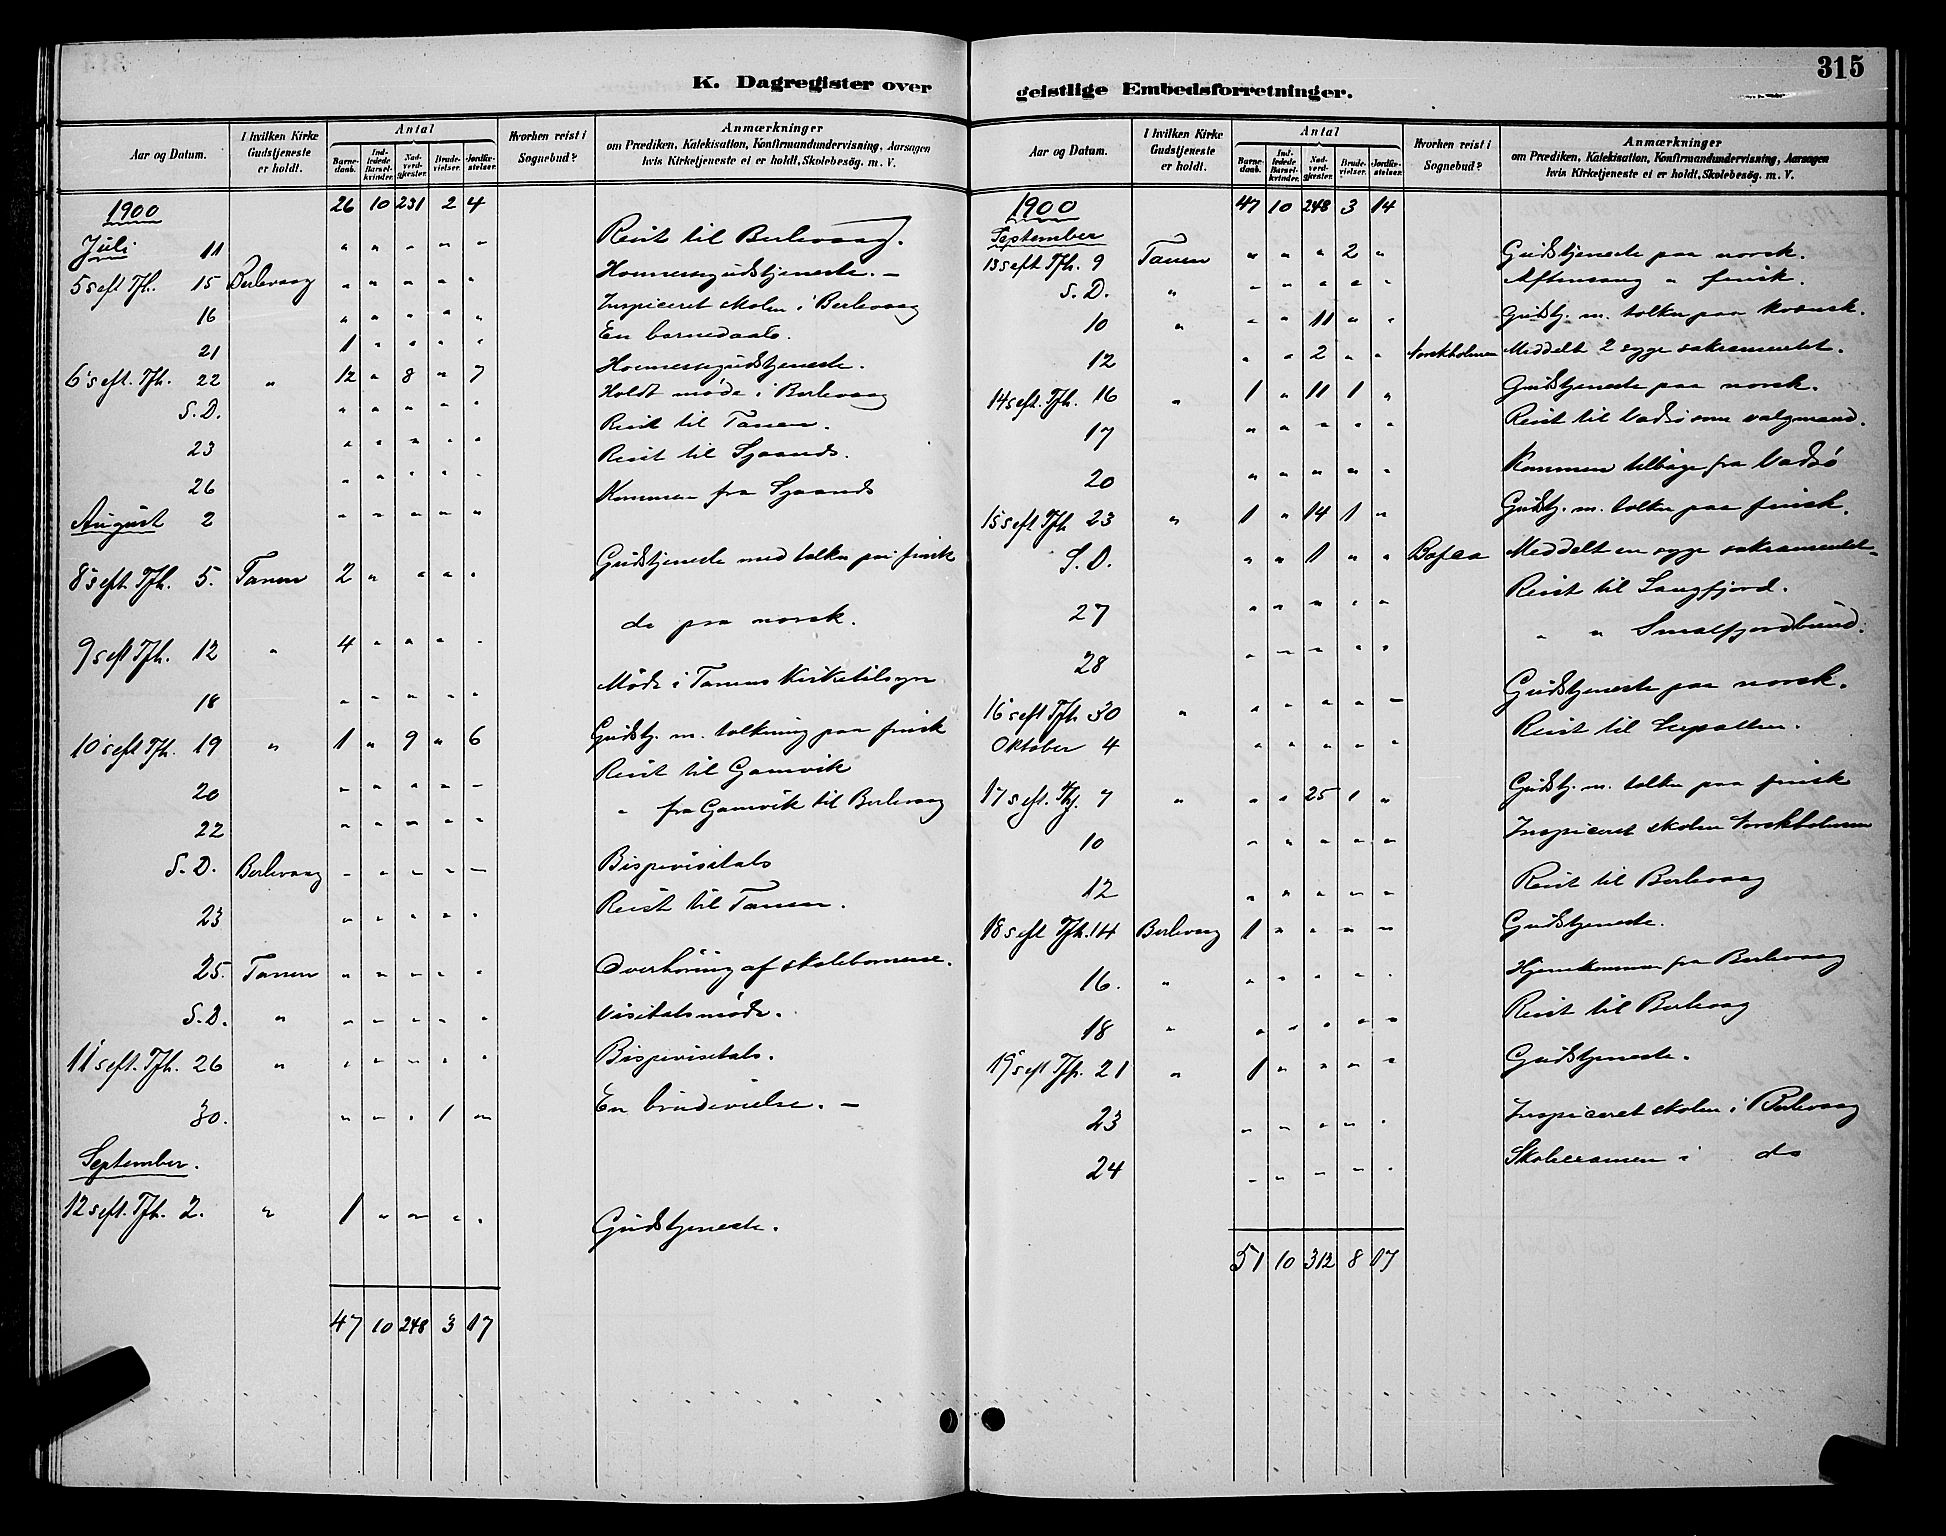 K. Dagregister over
Aar og Datum. | I hvilken Kirke Gudstjeneste er holdt. | Antal | Barne-daab. | Ind-ledede Barsel-kvinder. | Nad-verd-gjester. | Brude-vielser. | Jordfæ-stelser. | Hvorhen reist i Sognebud? | Anmærkninger om Prædiken, Katekisation, Konfirmandundervisning, Aarsagen hvis Kirketjeneste ei er holdt, Skolebesög. m. V.
1900 26 10 231 2 4
Juli 11 " " " " " Reist til Berlevaag.
5 s eft Tfh. 15 Berlevaag " " " " "
16 " " " " " Inspiceret skolen i Berlevaag
21 1 " " " " En barnedaab.
6 s eft. Tfh. 22 " 12 " 8 " 7
S.D. " " " " " Holdt møde i Berlevaag
23 " " " " " Reist til Tanen.
26 " " " " " Reist til
August 2 " " " " " Kommen fra
8 s eft. Tfh. 5. Tanen 2 " " " " Gudstjeneste med tolk paa finsk
9 s eft Tfh. 12 " 4 " " " " do paa norsk.
18 " " " " " Møde i Tanens Kirketilsyn
10 s eft Tfh. 19 " 1 " 9 " 6 Gudstj. m. tolkning paa finsk
20 " " " " " Reist til Gamvik
22 " " " " " " fra Gamvik til Berlevaag
S.D. Berlevaag " " " " " Bispevisitats
23 " " " " " Reist til Tanen.
25. Tanen " " " " " Overhöring af skolebornene.
S.D. " " " " " " Visitatsmöde.
11 s eft. Tfh. 26 " " " " " " Bispevisitats.
30. " " " 1 " En brudevielse. —
September.
12 s eft. Tfh. 2. " 1 " " " " Gudstjeneste.
47 10 248 3 17
315
geistlige Embedsforretninger.
Aar og Datum. | I hvilken Kirke Gudstjeneste er holdt. | Antal | Barne-daab. | Ind-ledede Barsel-kvinder. | Nad-verd-gjester. | Brude-vielser. | Jordfæ-stelser. | Hvorhen reist i Sognebud? | Anmærkninger om Prædiken, Katekisation, Konfirmandundervisning, Aarsagen hvis Kirketjeneste ei er holdt, Skolebesög. m. V.
1900 47 10 248 3 14
September
13 s eft Tfh. 9 Tanen " " " 2 " Gudstjeneste paa norsk.
S.D. " " " " " " Aftensang " finsk.
10 " " " 11 " " Gudstj. m. tolk paa kvænsk.
12 " " 2 " " Torskholmen Meddelt 2 syge sakramentet.
14 s eft. Tfh. 16 " 1 " 11 1 " Gudstjeneste paa norsk.
17 " " " " " Reist til Vadsö som valgmand.
20 " " " " " Kommen tilbage fra Vadsö
15 s eft Tfh 23 " 1 " 14 1 " Gudstj. m. tolk paa finsk.
S.D. " " 1 " " Meddelt en syge sakramentet.
27 " " " " " Reist til Langfjord.
28 " " " " " " " Smalfjordbund.
16 s eft Tfh 30 " " " " " " Gudstjeneste paa norsk.
Oktober 4 " " " " " Reist til
17 s eft. Tfh. 7 " " " 25 1 " Gudstj. m. tolk paa finsk
10 " " " " " Inspiceret skolen Torskholmen
12 " " " " " Reist til Berlevaag
18 s eft Tfh. 14 Berlevaag 1 " " " " Gudstjeneste.
16. " " " " " " Hjemkommen fra Berlevaag
18 " " " " " " Reist til Berlevaag
19 s eft Tfh. 21 " 1 " " " " Gudstjeneste.
23 " " " " " Inspiceret skolen i Berlevaag
24 " " " " " Skoleexamen i do
51 10 312 8 17